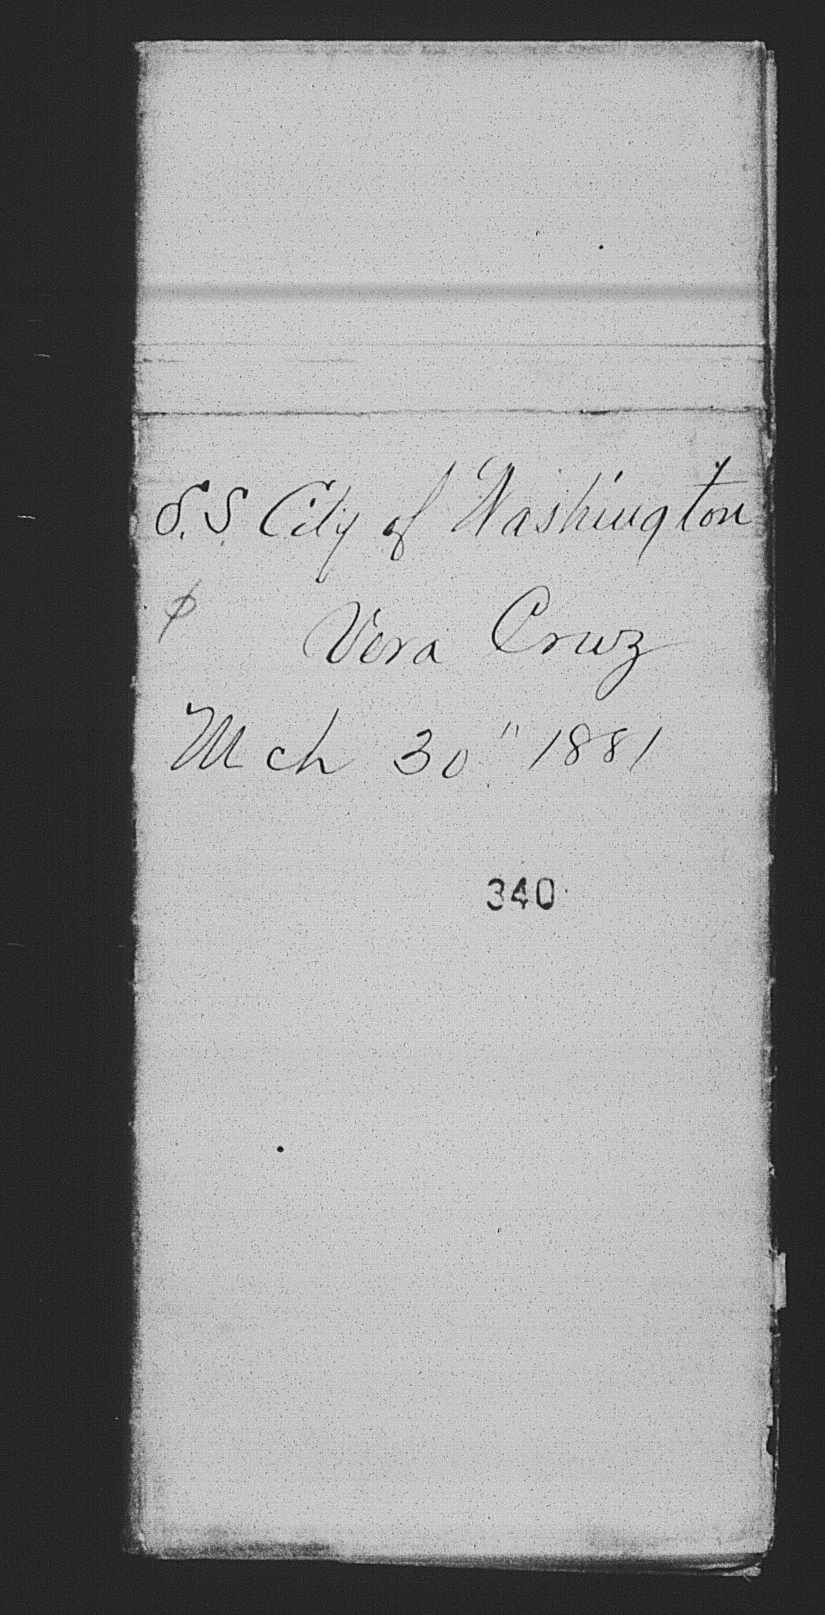 S.S. City of Washington
Vera Cruz
Mch 30" 1881
340